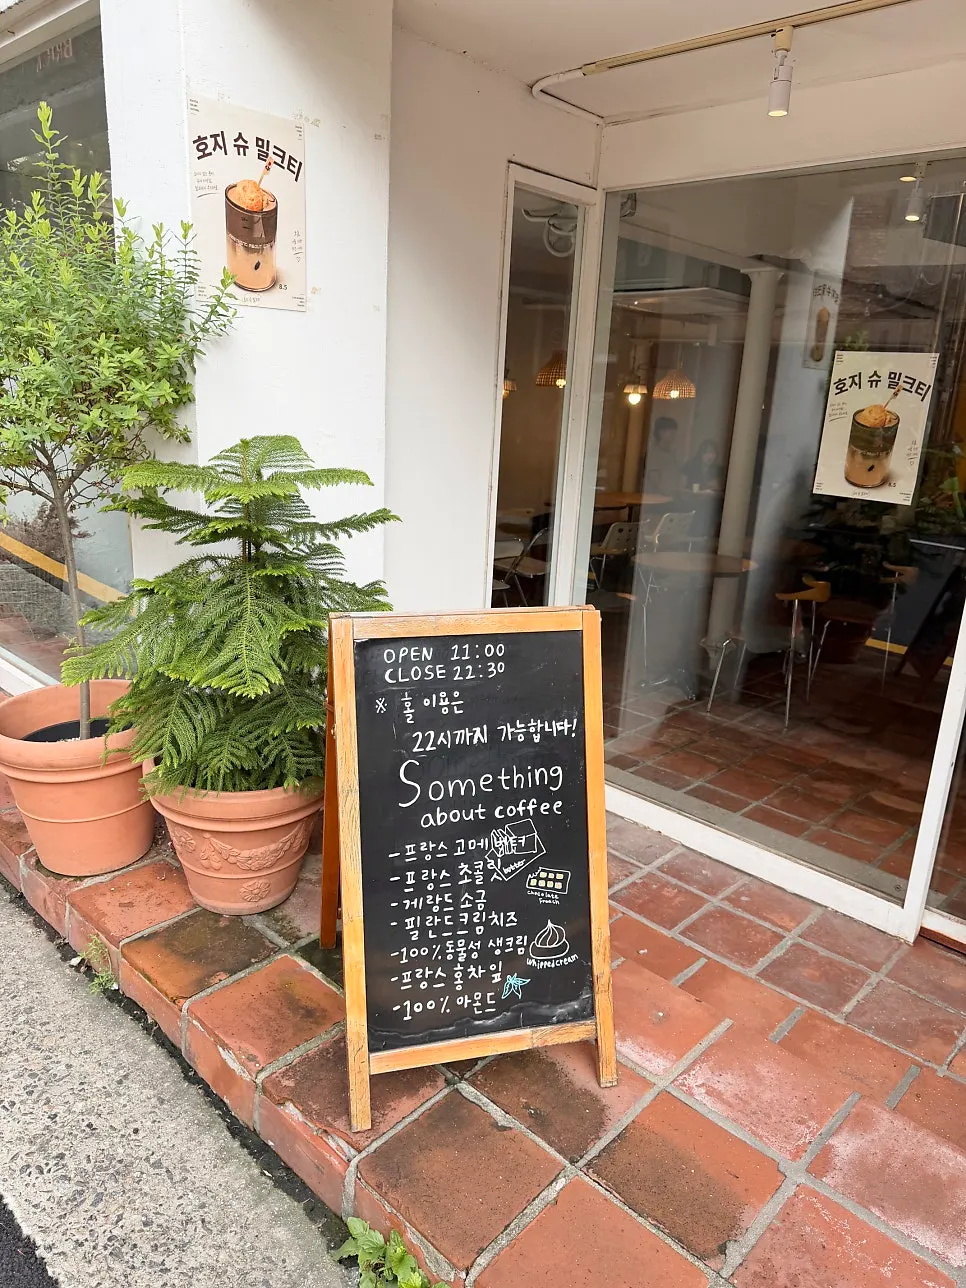 호지 슈 밀크티
8.5
호지 슈 밀크티
8.5
OPEN 11:00
CLOSE 22:30
※ 홀 이용은
22시까지 가능합니다!
Something
about coffee
-프랑스 고메
butter
-프랑스 초콜릿
chocolate
-게랑드 소금
-필란드크림치즈
-100%동물성 생크림
whippedcream
-프랑스 홍차잎
-100% 아몬드